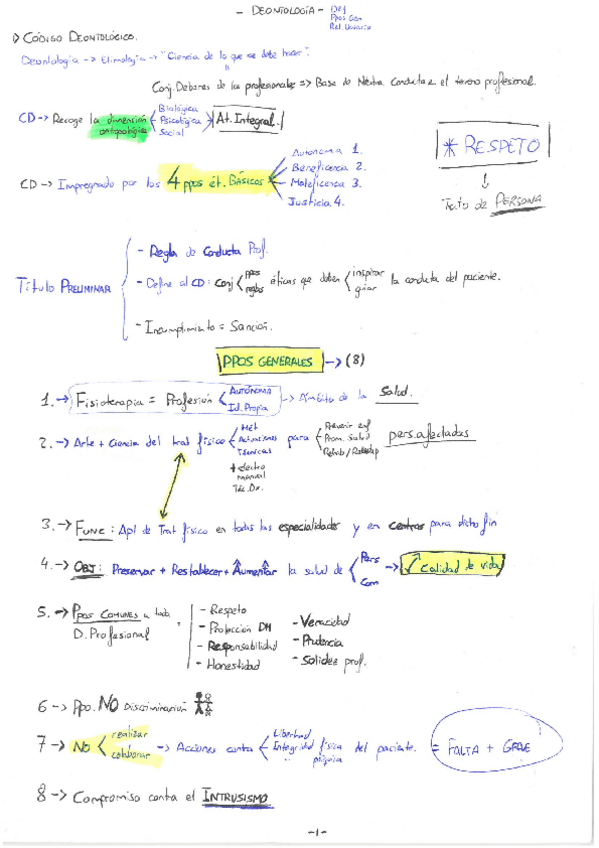 - DEONTOLOGÍA -
Ppos Gen
Rel. Usuario
▷ CÓDIGO DEONTOLÓGICO.
Deontología -> Etimología -> "Ciencia de lo que se debe hacer".
Conj. Deberes de los profesionales => Base de Nuestra Conducta en el terreno profesional.
CD -> Recoge la dimensión antropológica
Biológica
Psicológica
Social
At. Integral.
* RESPETO
Trato de PERSONA
CD -> Impregnado por los 4 ppos ét. BÁSICOS
Autonomía 1.
Beneficencia 2.
Maleficencia 3.
Justicia 4.
Título PRELIMINAR
- Regla de Conducta Prof.
- Define al CD: Conj ppos reglas éticas que deben inspirar guiar la conducta del paciente.
- Incumplimiento = Sanción.
PPOS GENERALES -> (8)
1. -> Fisioterapia = Profesión AUTÓNOMA Id. Propia -> Ámbito de la Salud.
2. -> Arte + Ciencia del trat físico
Mét
Actuaciones
Técnicas
+ electro
manual
Téc. Dx.
para
Prevenir enf
Prom. Salud
pers. afectadas
3. -> FUNC: Apl de Trat físico en todas las especialidades y en centros para dicho fin
4. -> OBJ: Preservar + Restablecer + Aumentar la salud de Pers Com -> Calidad de vida
5. -> Ppos COMUNES a toda D. Profesional
- Respeto
- Protección DH
- Responsabilidad
- Honestidad
- Veracidad
- Prudencia
- Solidez prof.
6 -> Ppo. NO Discriminación
7 -> NO realizar colaborar -> Acciones contra Libertad Integridad física " psíquica del paciente. = FALTA + GRAVE
8 -> Compromiso contra el INTRUSISMO
-1-